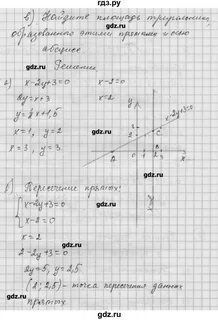 гдз.ру
в) Найдите площадь треугольника,
образованного этими прямыми и осью
абсцисс.
Решение
а) x-2y+3=0 x-2=0
2y=x+3 x=2
y=½x+1,5
x=1, y=2
x=3, y=3
б) Пересечение прямых:
x-2y+3=0
x-2=0
x=2
2-2y+3=0
2y=5, y=2,5
(2; 2,5) - точка пересечения данных
прямых
x-2y+3=0
y
x
C
gdz.ru
gdz.ru
gdz.ru
gdz.ru
gdz.ru
gdz.ru
gdz.ru
gdz.ru